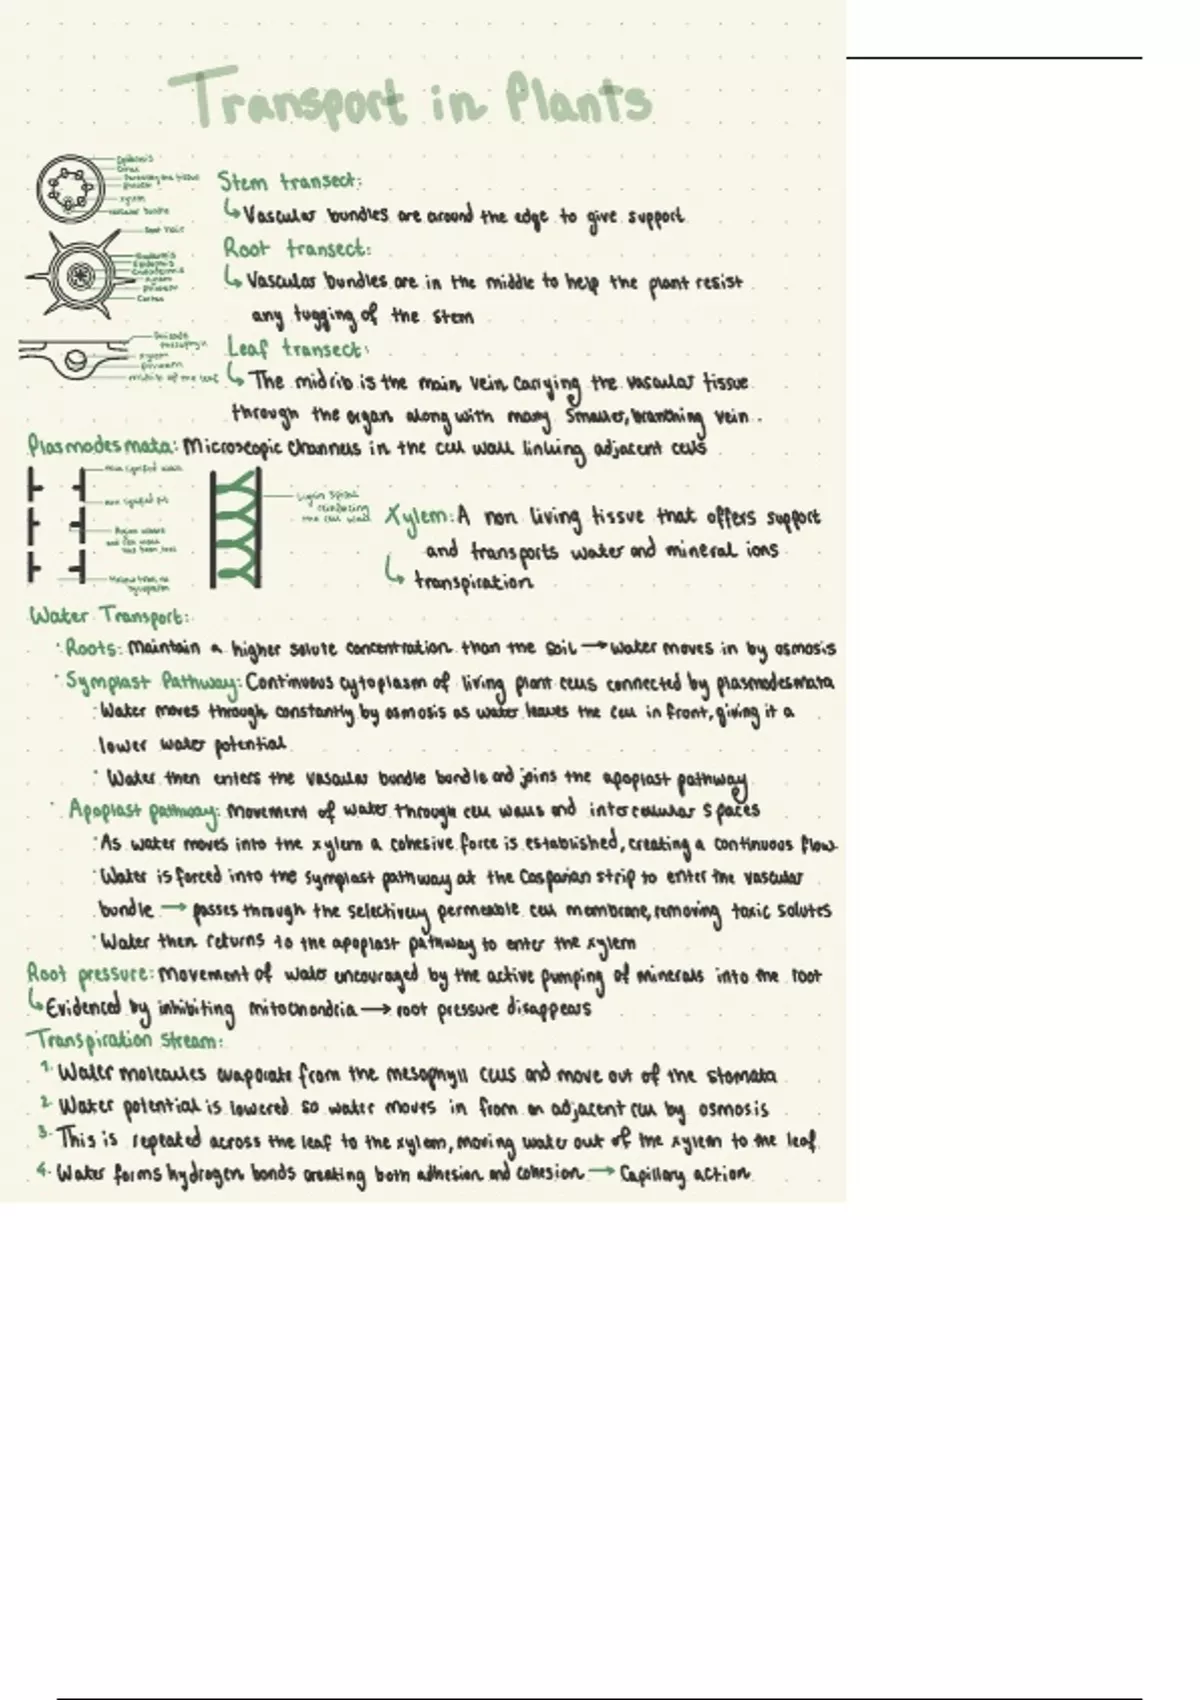 Transport in Plants
Epidermis
Parenchyma tissue
xylem
vascular bundle
Stem transect:
↳ Vascular bundles are around the edge to give support
Root hair
Epidermis
Endodermis
xylem
Cortex
Root transect:
↳ Vascular bundles are in the middle to help the plant resist
any tugging of the stem
Palisade
mesophyll
xylem
midrib of the leaf
Leaf transect:
↳ The midrib is the main vein carrying the vascular tissue
through the organ along with many smaller, branching vein..
Plasmodesmata: Microscopic channels in the cell wall linking adjacent cells
non lignified pit
Lignin spiral
reinforcing
the cell wall
Xylem: A non living tissue that offers support
and transports water and mineral ions
↳ transpiration
Water Transport:
· Roots: Maintain a higher solute concentration than the soil → water moves in by osmosis
· Symplast Pathway: Continuous cytoplasm of living plant cells connected by plasmodesmata
· Water moves through constantly by osmosis as water leaves the cell in front, giving it a
lower water potential
· Water then enters the vascular bundle bundle and joins the apoplast pathway
· Apoplast pathway: Movement of water through cell walls and intercellular spaces
· As water moves into the xylem a cohesive force is established, creating a continuous flow
· Water is forced into the symplast pathway at the Casparian strip to enter the vascular
bundle → passes through the selectively permeable cell membrane, removing toxic solutes
· Water then returns to the apoplast pathway to enter the xylem
Root pressure: Movement of water encouraged by the active pumping of minerals into the root
↳ Evidenced by inhibiting mitochondria → root pressure disappears
Transpiration stream:
1. Water molecules evaporate from the mesophyll cells and move out of the stomata
2. Water potential is lowered so water moves in from an adjacent cell by osmosis
3. This is repeated across the leaf to the xylem, moving water out of the xylem to the leaf
4. Water forms hydrogen bonds creating both adhesion and cohesion → Capillary action